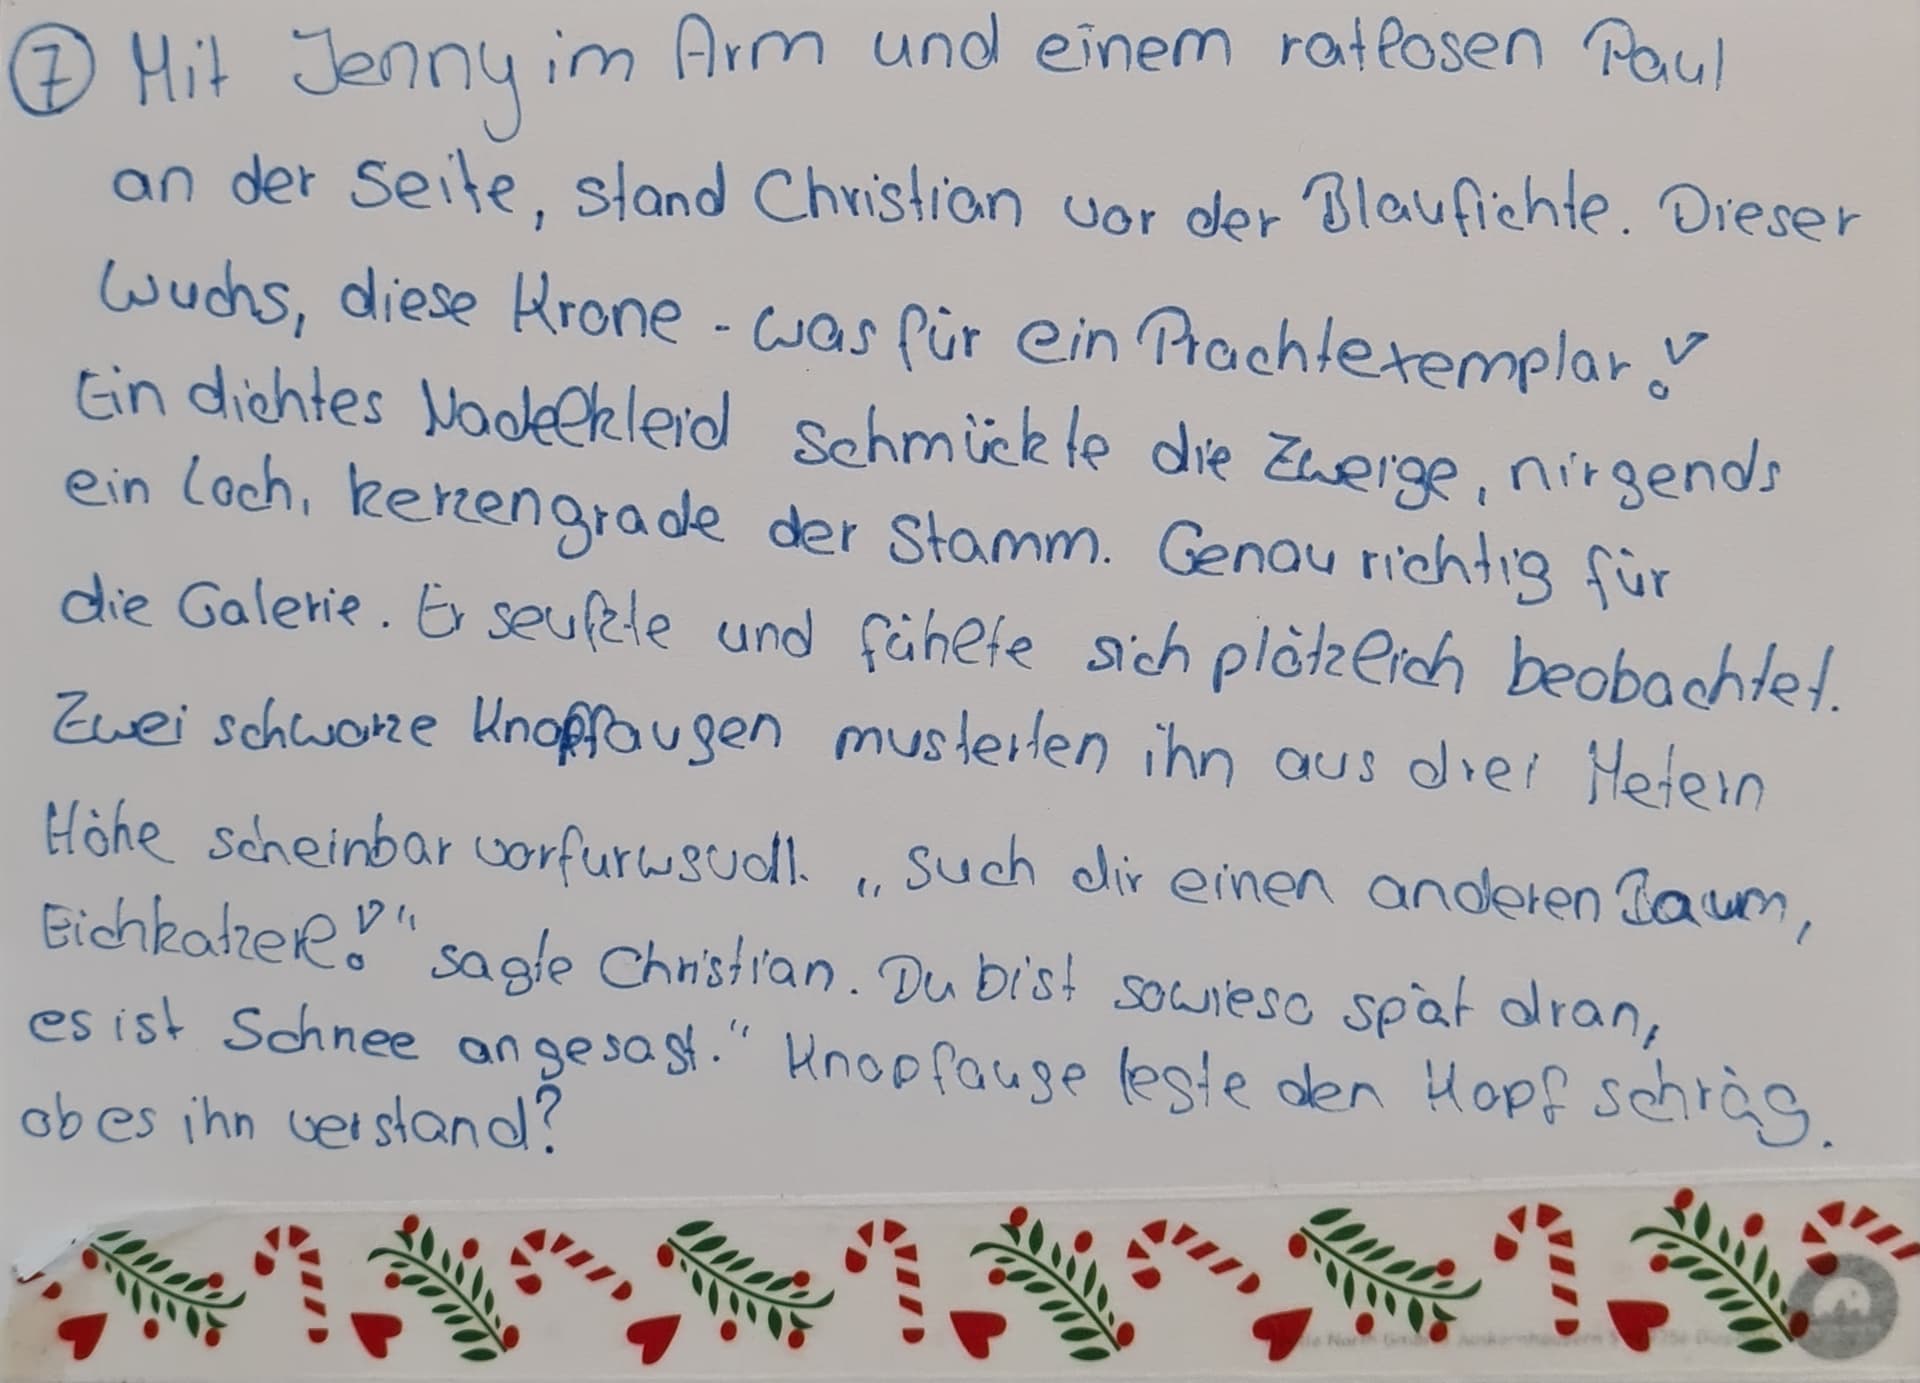 ⑦ Mit Jenny im Arm und einem ratlosen Paul
an der Seite, stand Christian vor der Blaufichte. Dieser
Wuchs, diese Krone - was für ein Prachtexemplar!
Ein dichtes Nadelkleid schmückte die Zweige, nirgends
ein Loch, kerzengrade der Stamm. Genau richtig für
die Galerie. Er seufzte und fühlte sich plötzlich beobachtet.
Zwei schwarze Knopfaugen musterten ihn aus drei Metern
Höhe scheinbar vorfurwsvoll. „Such dir einen anderen Baum,
Eichkatzerl!" sagte Christian. Du bist sowieso spät dran,
es ist Schnee angesagt." Knopfauge legte den Kopf schräg.
ob es ihn verstand?